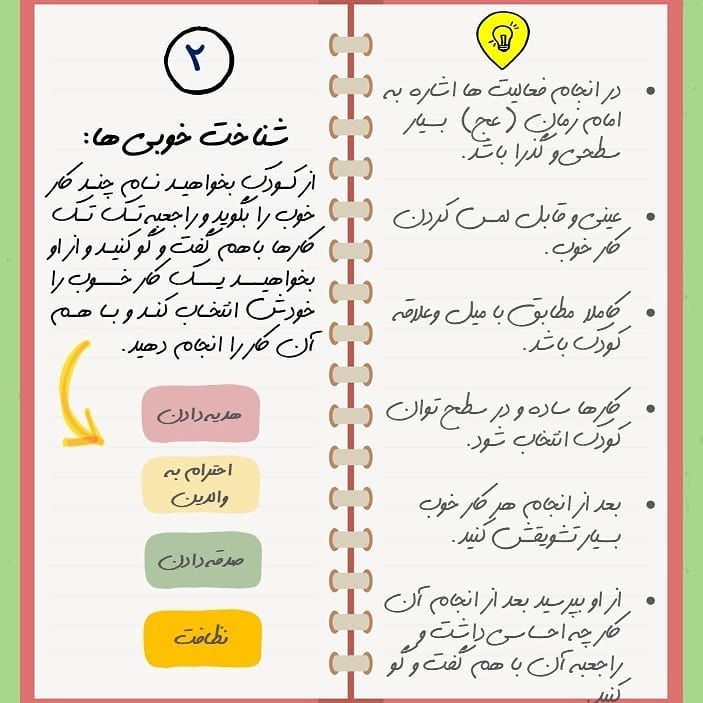 در انجام فعالیت ها اشاره به
امام زمان (عج) بسیار
سطحی و گذرا باشد.
عینی و قابل لمس کردن
کار خوب.
کاملا مطابق با میل وعلاقه
کودک باشد.
کارها ساده و در سطح توان
کودک انتخاب شود.
بعد از انجام هر کار خوب
بسیار تشویقش کنید.
از او بپرسید بعد از انجام آن
کار چه احساسی داشت و
راجعبه آن با هم گفت و گو
کنید.
۲
شناخت خوبی ها:
از کودک بخواهید نام چند کار
خوب را بگوید و راجعبه تک تک
کارها باهم گفت و گو کنید و از او
بخواهید یک کار خوب را
خودش انتخاب کند و با هم
آن کار را انجام دهید.
هدیه‌دادن
احترام به
والدین
صدقه‌دادن
نظافت